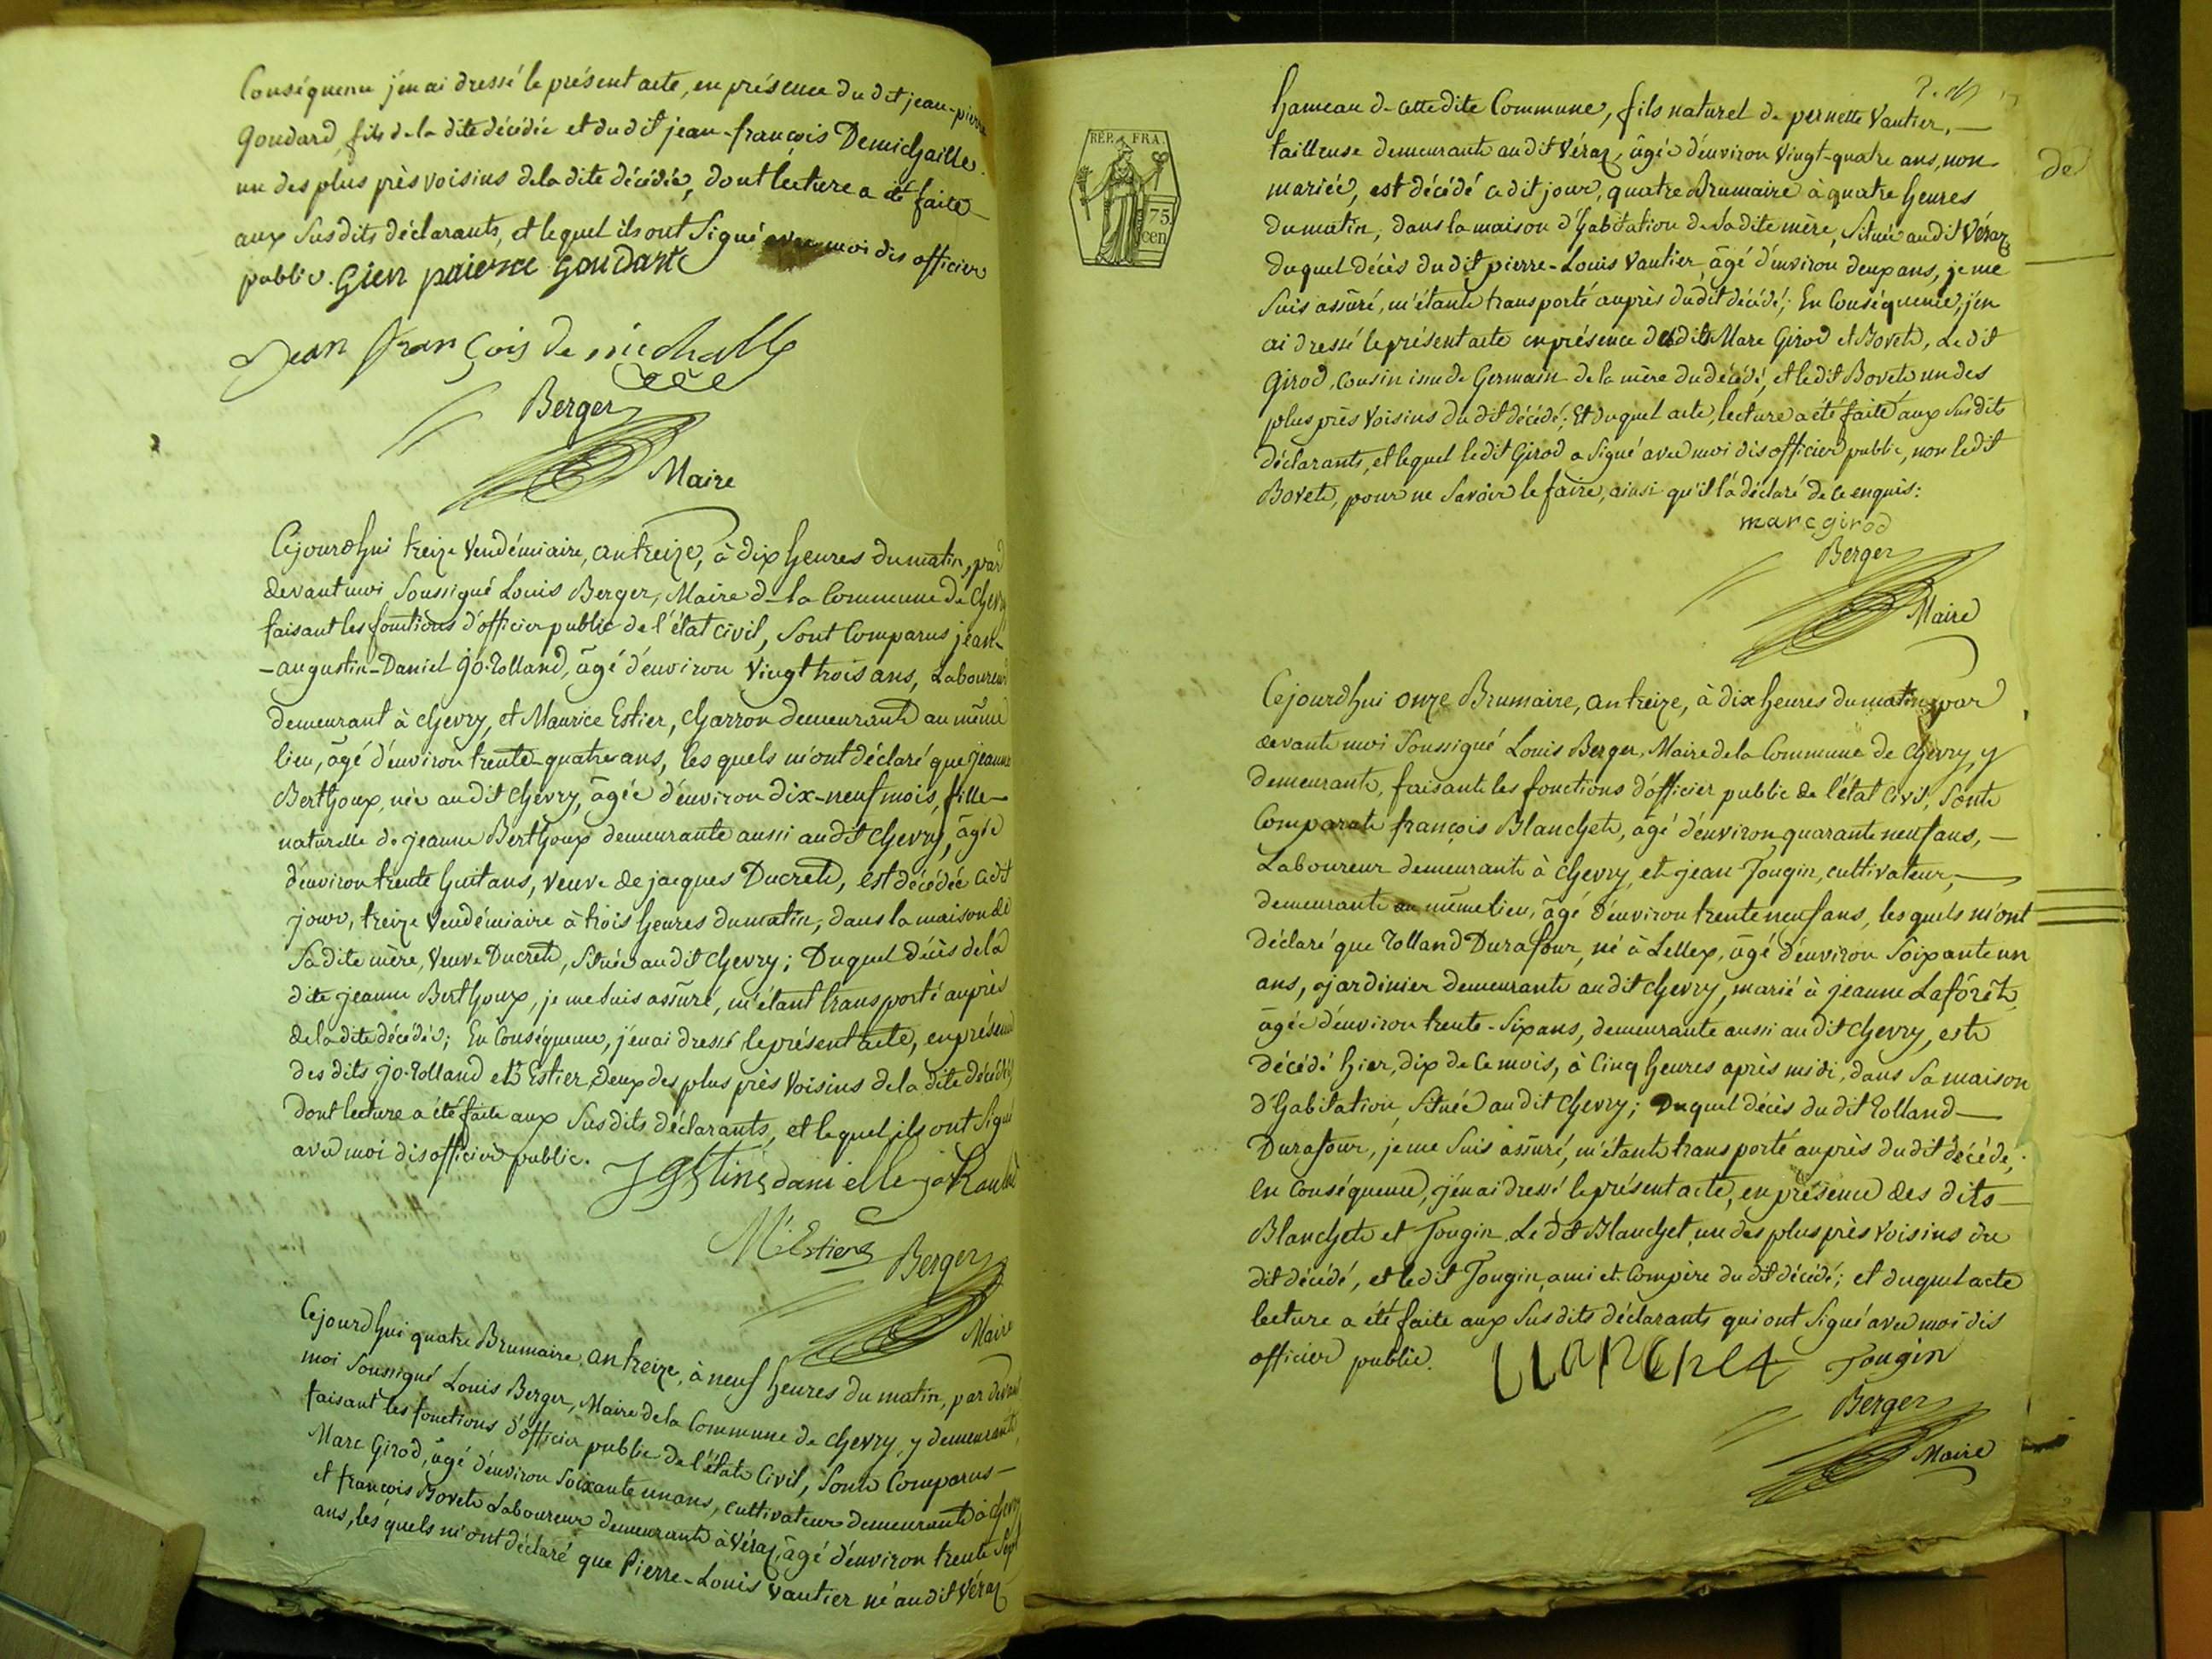 Conséquence j'en ai dressé le présent acte, en présence du dit jean-pierre
Goudard, fils de la dite décédée et du dit jean-françois Demichaille
un des plus près voisins de la dite décédée, dont lecture a été faite
aux Susdits déclarants, et lequel ils ont Signé avec moi dis officier
public. Gien paierre Goudart
Jean François de michalle
Berger
Maire
Cejourdhui treize Vendémiaire, an treize, à dix heures du matin, par
devant moi Soussigné Louis Berger, Maire de la Commune de Chevry
faisant les fonctions d'officier public de l'état civil, Sont Comparus jean-
-augustin-Daniel jo-Rolland, âgé d'environ Vingt trois ans, Laboureur
demeurant à chevry, et Maurice Estier, charron demeurant au même
lieu, âgé d'environ trente-quatre ans, les quels m'ont déclaré que jeanne
Berthoux, née au dit chevry, âgée d'environ dix-neuf mois, fille-
naturelle de jeanne Berthoux demeurante aussi au dit chevry, âgée
d'environ trente huit ans, veuve de jacques Ducret, est décédée cedit
jour, treize Vendémiaire à trois heures du matin, dans la maison de
Sa dite mère, Veuve Ducret, Située au dit chevry; Duquel décès de la
dite jeanne Berthoux, je me suis assuré, m'étant transporté auprès
de la dite décédée; En Conséquence, j'en ai dressé le présent acte, en présence
des dits jo-Rolland et Estier, Deux des plus près Voisins de la dite décédée
Dont lecture a été faite aux Susdits déclarants, et lequel ils ont Signé
avec moi dis officier public.
M. Estier
Berger
Maire
Cejourdhui quatre Brumaire, an treize, à neuf heures du matin, par devant
moi Soussigné Louis Berger, Maire de la Commune de chevry, y demeurant,
faisant les fonctions d'officier public de l'état Civil, Sont Comparus-
Marc Girod, âgé d'environ Soixante un ans, cultivateur demeurant à chevry
et françois Bovet Laboureur demeurant à Véraz, âgé d'environ trente Sept
ans, les quels m'ont déclaré que Pierre-Louis Vautier né au dit Véraz
REP. FRA.
75
cen
hameau de cette dite Commune, fils naturel de pernette Vautier,-
tailleuse demeurante au dit Véraz, âgée d'environ Vingt-quatre ans, non
mariée, est décédé cedit jour, quatre Brumaire à quatre heures
du matin, dans la maison d'habitation de Sa dite mère, Située au dit Véraz
Duquel décès du dit pierre-Louis Vautier âgé d'environ deux ans, je me
Suis assuré, m'étant transporté auprès du dit décédé; En Conséquence, j'en
ai dressé le présent acte en présence desdits Marc Girod et Bovet, Le dit
Girod, Cousin issu de Germain de la mère du décédé, et le dit Bovet un des
plus près Voisins du dit décédé; Et duquel acte, lecture a été faite aux Susdits
déclarants, et lequel ledit Girod a Signé avec moi dis officier public, non le dit
Bovet, pour ne Savoir le faire, ainsi qu'il l'a déclaré de ce enquis:
marc girod
Berger
Maire
de
Cejourdhui onze Brumaire, an treize, à dix heures du matin, par
devant moi Soussigné Louis Berger, Maire de la Commune de chevry, y
demeurant, faisant les fonctions d'officier public de l'état Civil, Sont
Comparut françois Blanchet, âgé d'environ quarante neuf ans,-
Laboureur demeurant à chevry, et jean Tougin, cultivateur,-
demeurant au même lieu, âgé d'environ trente neuf ans, les quels m'ont
déclaré que Rolland Durafour, né à Lellex, âgé d'environ Soixante un
ans, jardinier demeurant au dit chevry, marié à jeanne Laforêt,
âgée d'environ trente-Six ans, demeurante aussi au dit chevry, est
décédé hier, dix de ce mois, à Cinq heures après midi, dans Sa maison
d'habitation Située au dit chevry; Duquel décès du dit Rolland-
Durafour, je me Suis assuré, m'étant transporté auprès du dit décédé;
en Conséquence, j'en ai dressé le présent acte, en présence des dits-
Blanchet et Tougin, Le dit Blanchet, un des plus près voisins du
dit décédé, et le dit Tougin, ami et Compère du dit décédé; et duquel acte
lecture a été faite aux Susdits déclarants qui ont Signé avec moi dis
officier public. Tougin
Berger
Maire